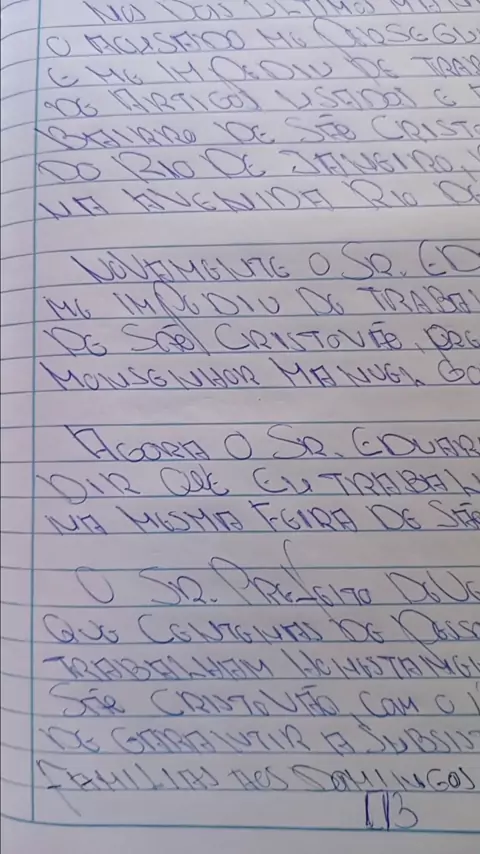 NOS DOIS ÚLTIMOS
O ACUSADO ME PERSEGU
E ME IMPEDIU DE TRA
DE ARTIGOS USADOS E
BAIRRO DE SÃO CRISTO
DO RIO DE JANEIRO,
NA AVENIDA RIO DE
NOVAMENTE O SR. ED
ME IMPEDIU DE TRABAL
DE SÃO CRISTOVÃO, PRE
MONSENHOR MANUEL GO
AGORA O SR. EDUAR
DIR QUE EU TRABAL
NA MESMA FEIRA DE SÃO
O SR. PREFEITO DEVE
QUE CENTENAS DE PESSO
TRABALHAM HONESTAMEN
SÃO CRISTOVÃO COM O
DE GARANTIR A SUBSIST
FAMILIAS AOS DOMINGOS